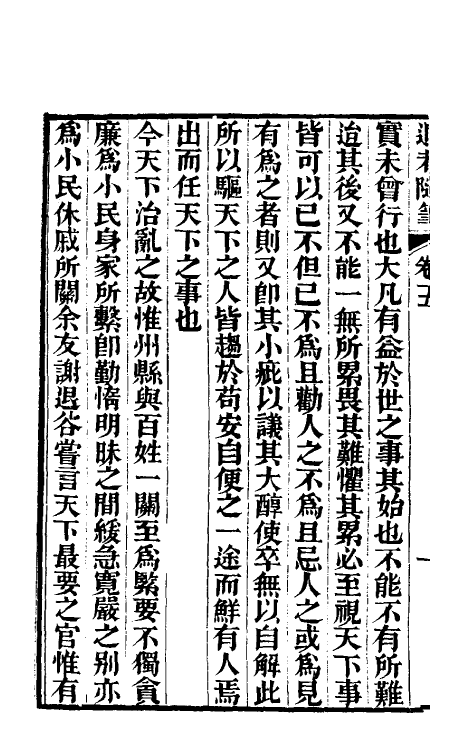 退耒隨筆 卷一五 一
實未曾行也大凡有益於世之事其始也不能不有所難
迨其後又不能一無所累畏其難懼其累必至視天下事
皆可以已不但己不爲且勸人之不爲且忌人之或爲見
有爲之者則又卽其小疵以議其大醇使卒無以自解此
所以驅天下之人皆趨於苟安自便之一途而鮮有人焉
出而任天下之事也
今天下治亂之故惟州縣與百姓一關至爲緊要不獨貪
廉爲小民身家所繫卽勤惰明昧之間緩急寛嚴之别亦
爲小民休戚所關余友謝退谷嘗言天下最要之官惟有